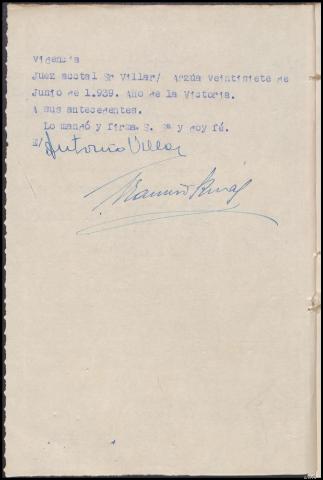 Vigencia
Juez acctal Sr Villar/ Arzúa veintisiete de
Junio de 1.939. Año de la Victoria.
A sus antecedentes.
Lo mandó y firma S. Sª y doy fé.
E/
Antonio Villar